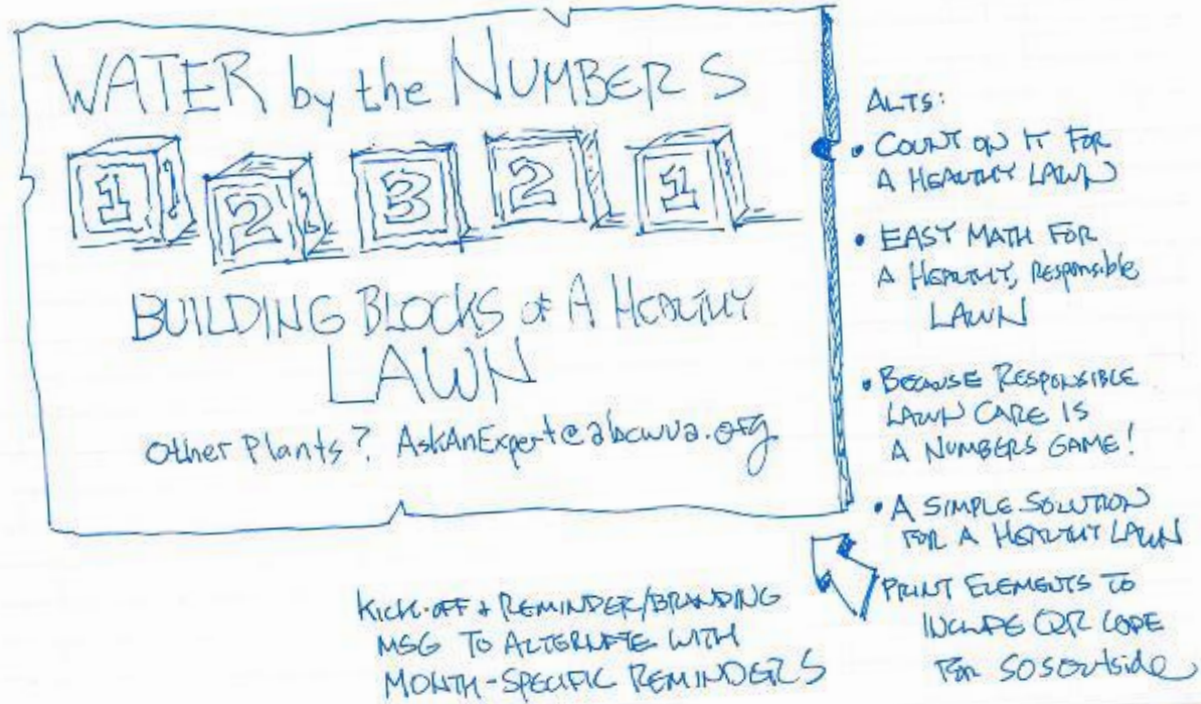 WATER by the NUMBERS
1 2 3 2 1
BUILDING BLOCKS of A HEALTHY
LAWN
Other Plants? AskAnExpert@abcwua.org
ALTS:
• COUNT ON IT FOR
A HEALTHY LAWN
• EASY MATH FOR
A HEALTHY, Responsible
LAWN
• BECAUSE RESPONSIBLE
LAWN CARE IS
A NUMBERS GAME!
• A SIMPLE SOLUTION
FOR A HEALTHY LAWN
PRINT ELEMENTS TO
INCLUDE QR CODE
FOR 505Outside
KICK-OFF + REMINDER/BRANDING
MSG TO ALTERNATE WITH
MONTH-SPECIFIC REMINDERS